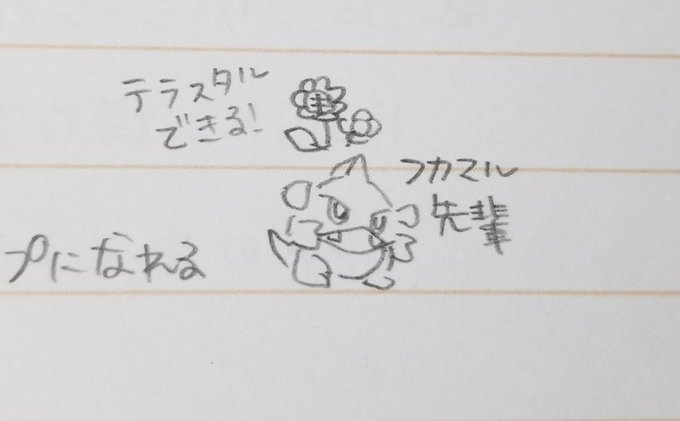 テラスタル
できる!
フカマル
先輩
プになれる